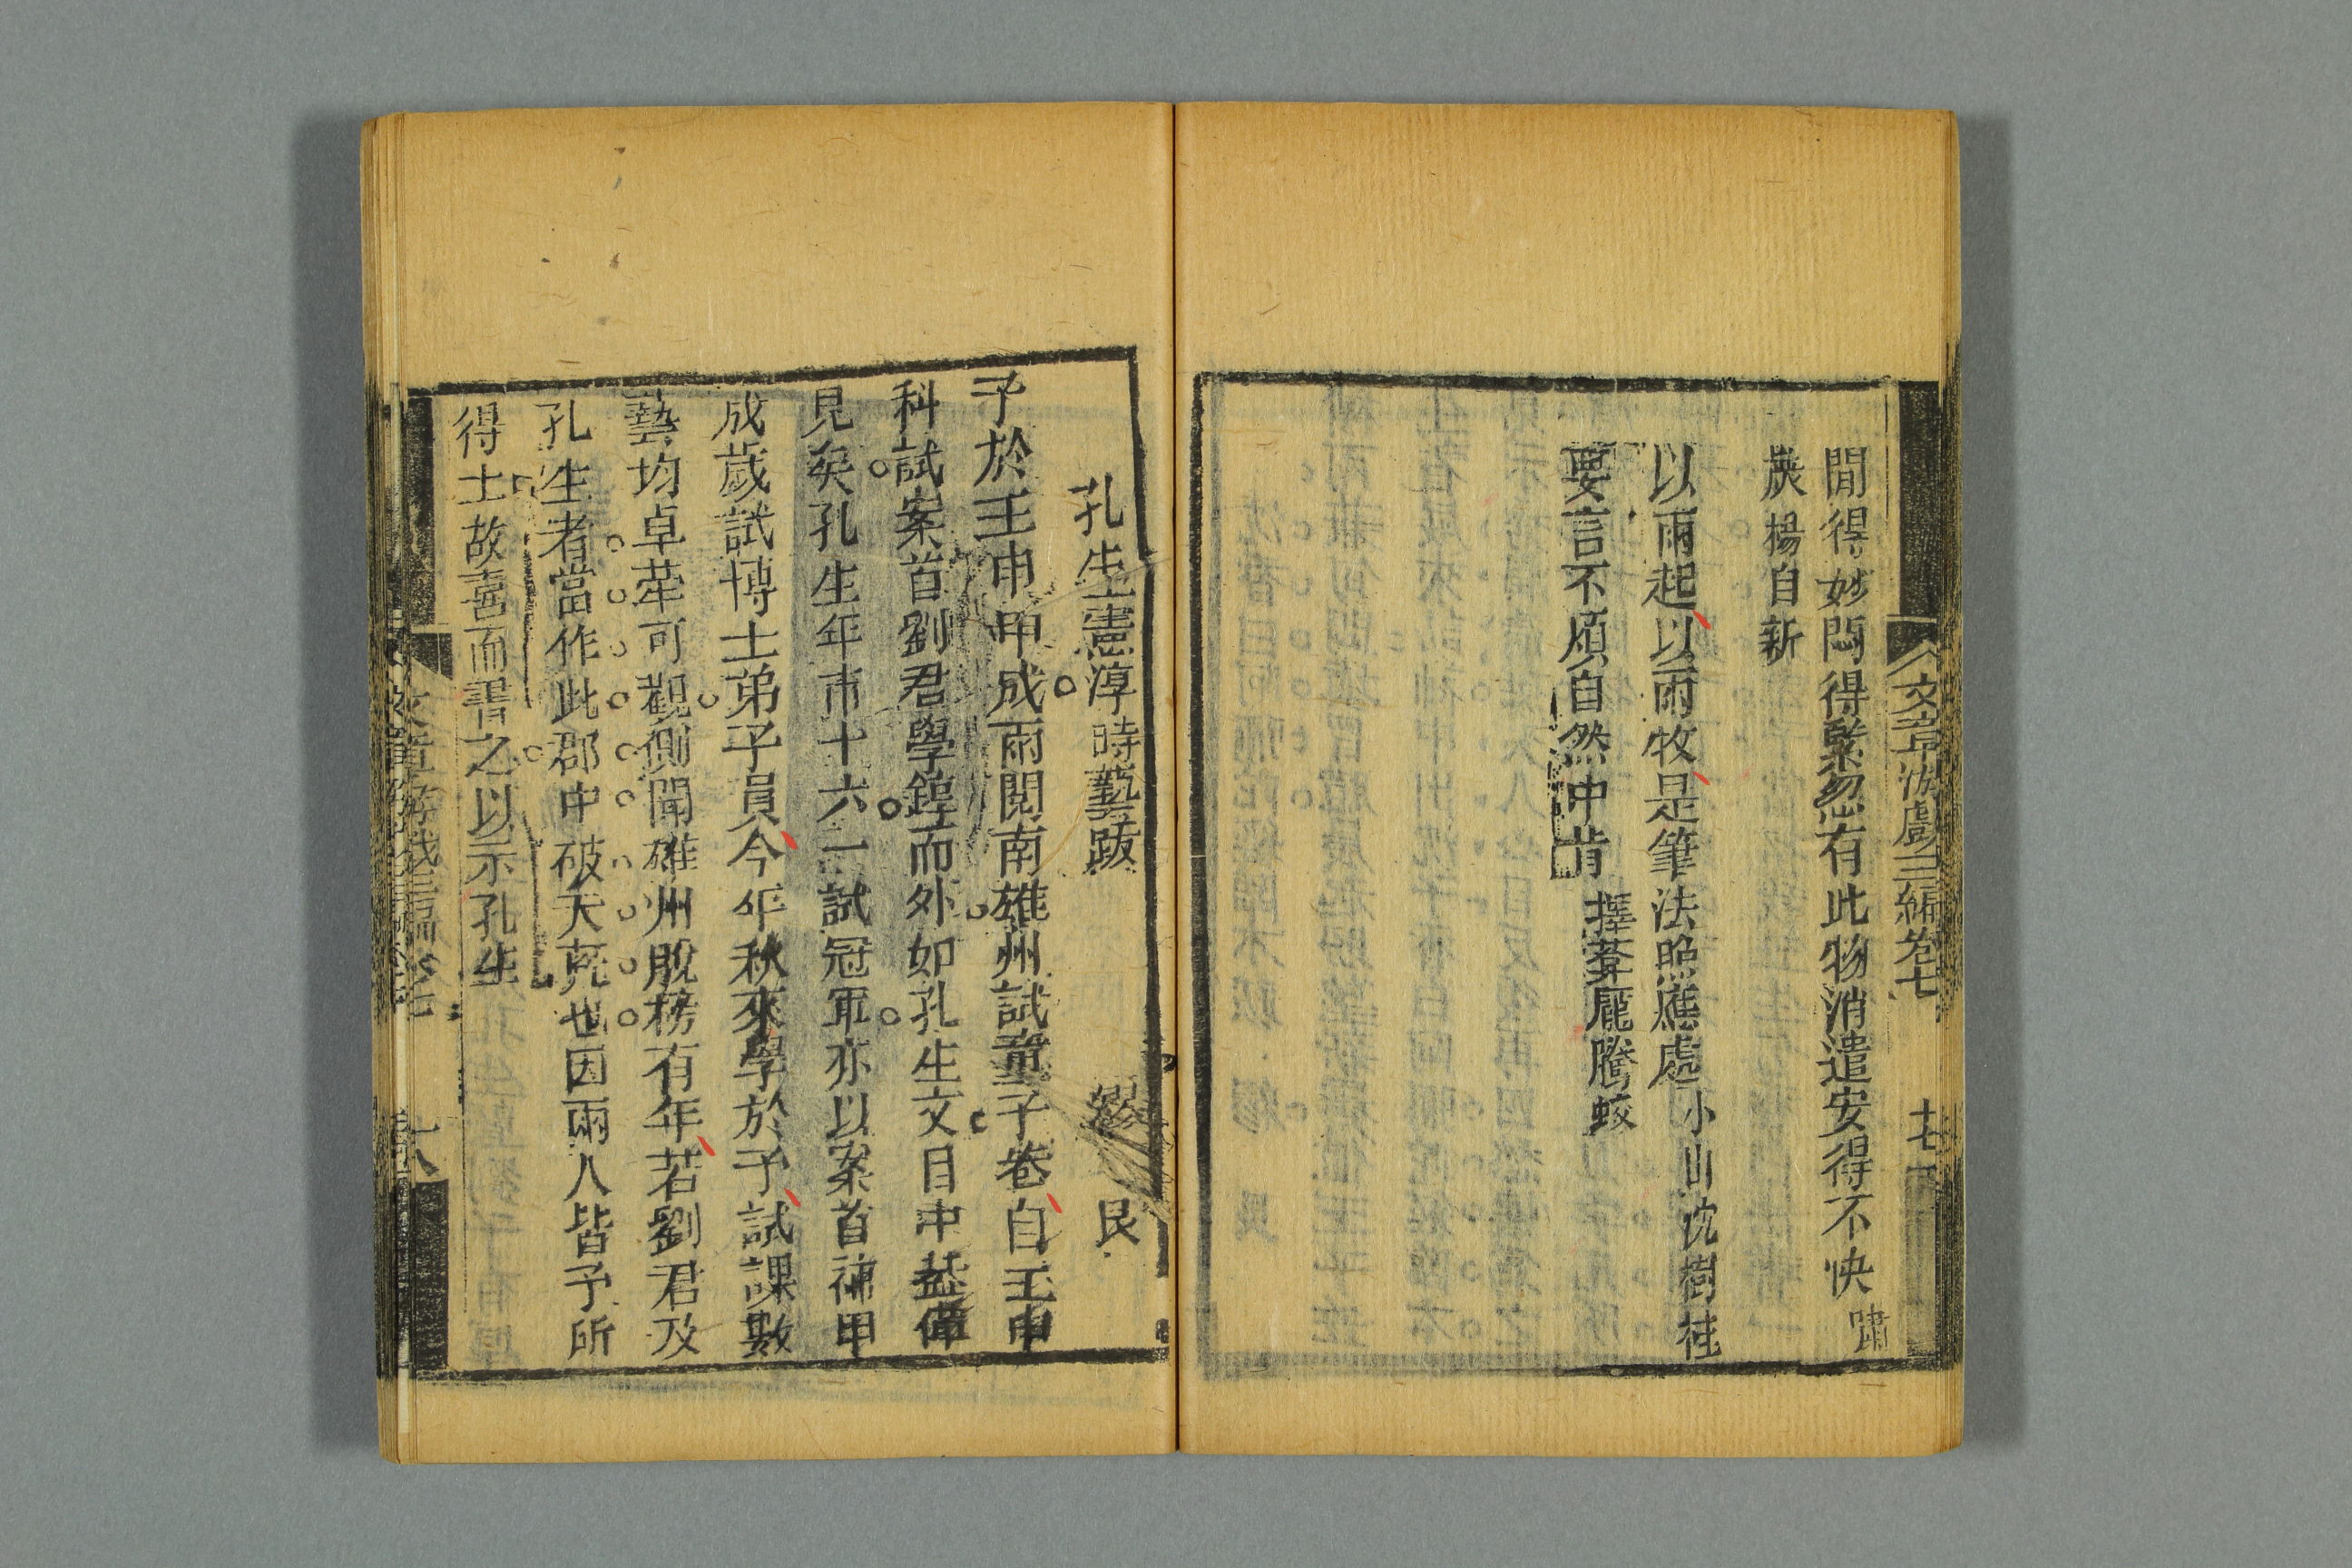 文章游戲三編卷七 十七
閒得妙悶得緊忽有此物消遣安得不快 嘯
炭楊自新
以雨起以雨收是筆法照應處 小山沈樹桂
要言不煩自然中肯 擇菴龐騰蛟
孔生憲淳時藝跋 繆 艮
予於壬申甲戌兩閱南雄州試童子卷自壬申
科試案首劉君學鍠而外如孔生文目中蓋僅
見矣孔生年甫十六一試冠軍亦以案首補甲
戌歲試博士弟子員今年秋來學於予試課數
藝均卓犖可觀側聞雄州脫榜有年若劉君及
孔生者當作此郡中破天荒也因兩人皆予所
得士故喜而書之以示孔生
文章游戲三編卷七 十八